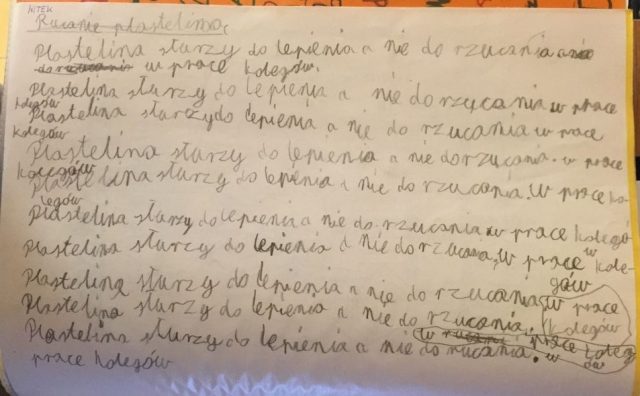 WITEK
Rucanie plastelina,
Plastelina starzy do lepienia a nie do rzucania ani
do rzucania w prace kolegów.
Plastelina starzy do lepienia a nie do rzycania w prace
kolegów
Plastelina starzy do lepienia a nie do rzucania w prace
kolegów
Plastelina starzy do lepienia a nie do rzucania. w prace
kolegów
Plastelina starzy do lepienia a nie do rzucania. w prace ko-
legów
Plastelina starzy do lepienia a nie do rzucania w prace kolegó
w
Plastelina starzy do lepienia a nie do rzucania, w prace kole-
gów
Plastelina starzy do lepienia a nie do rzucania w prace
kolegów
Plastelina starzy do lepienia a nie do rzucania. prace koleg
ów
Plastelina starzy do lepienia a nie do rucania. w
prace kolegów